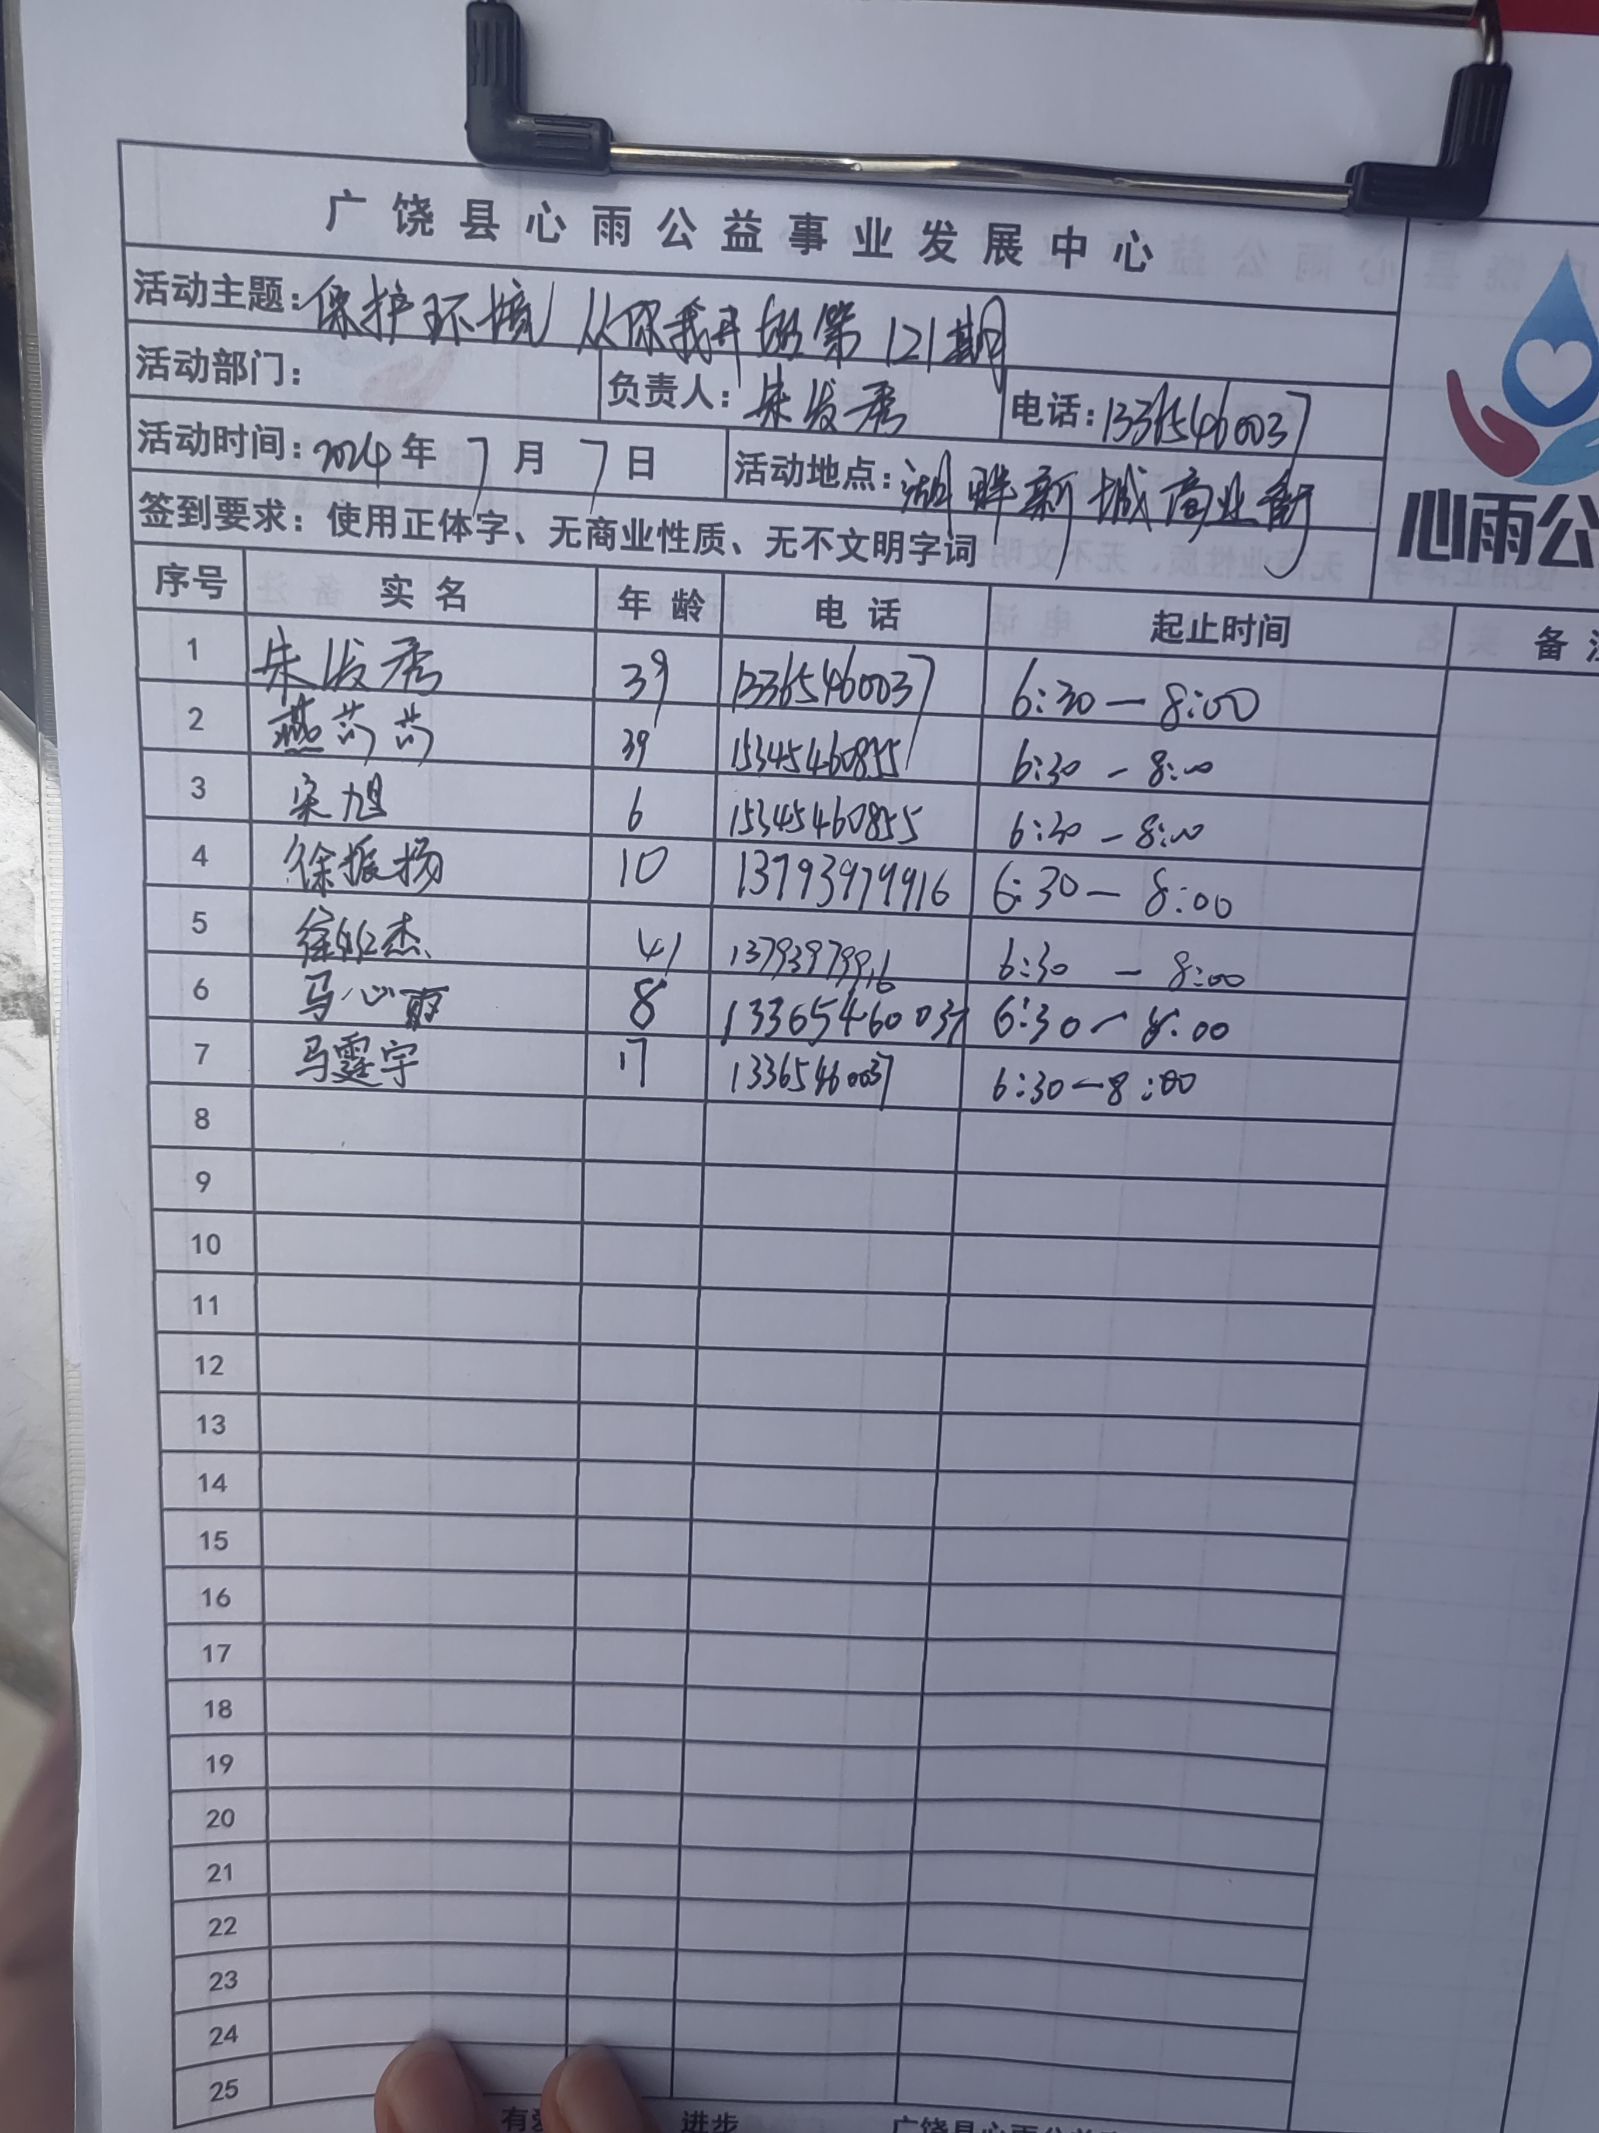 广饶县心雨公益事业发展中心
活动主题:保护环境从你我开始第121期
活动部门: 负责人:朱发秀 电话:13365460037
活动时间:2024年7月7日 活动地点:湖畔新城商业街
签到要求:使用正体字、无商业性质、无不文明字词
心雨公
序号 实名 年龄 电话 起止时间 备
1 朱发秀 39 13365460037 6:30—8:00
2 燕芳芳 39 15345460855 6:30—8:00
3 宋旭 6 15345460855 6:30—8:00
4 徐振扬 10 13793979916 6:30—8:00
5 徐 杰 41 13793979916 6:30—8:00
6 马心雨 8 13365460037 6:30—8:00
7 马霆宇 17 13365460037 6:30—8:00
8
9
10
11
12
13
14
15
16
17
18
19
20
21
22
23
24
25
有爱 进步 广饶县心雨公